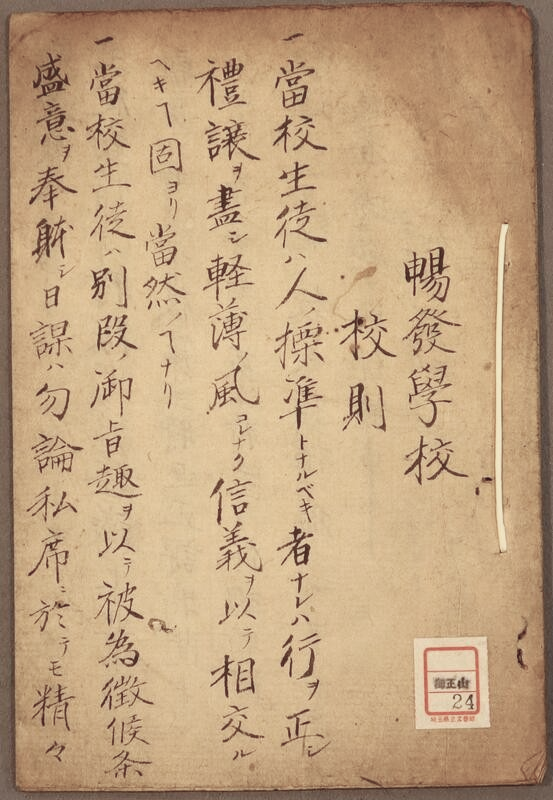 暢發學校
校則
一當校生徒ハ人ノ標準トナルベキ者ナレハ行ヲ正シ
禮譲ヲ盡シ軽薄ノ風コレナク信義ヲ以テ相交ル
ヘキヿ固ヨリ當然ノヿナリ
一當校生徒ハ別段ノ御旨趣ヲ以テ被為徴候条
盛意ヲ奉躰シ日課ハ勿論私席ニ於テモ精々
山
24